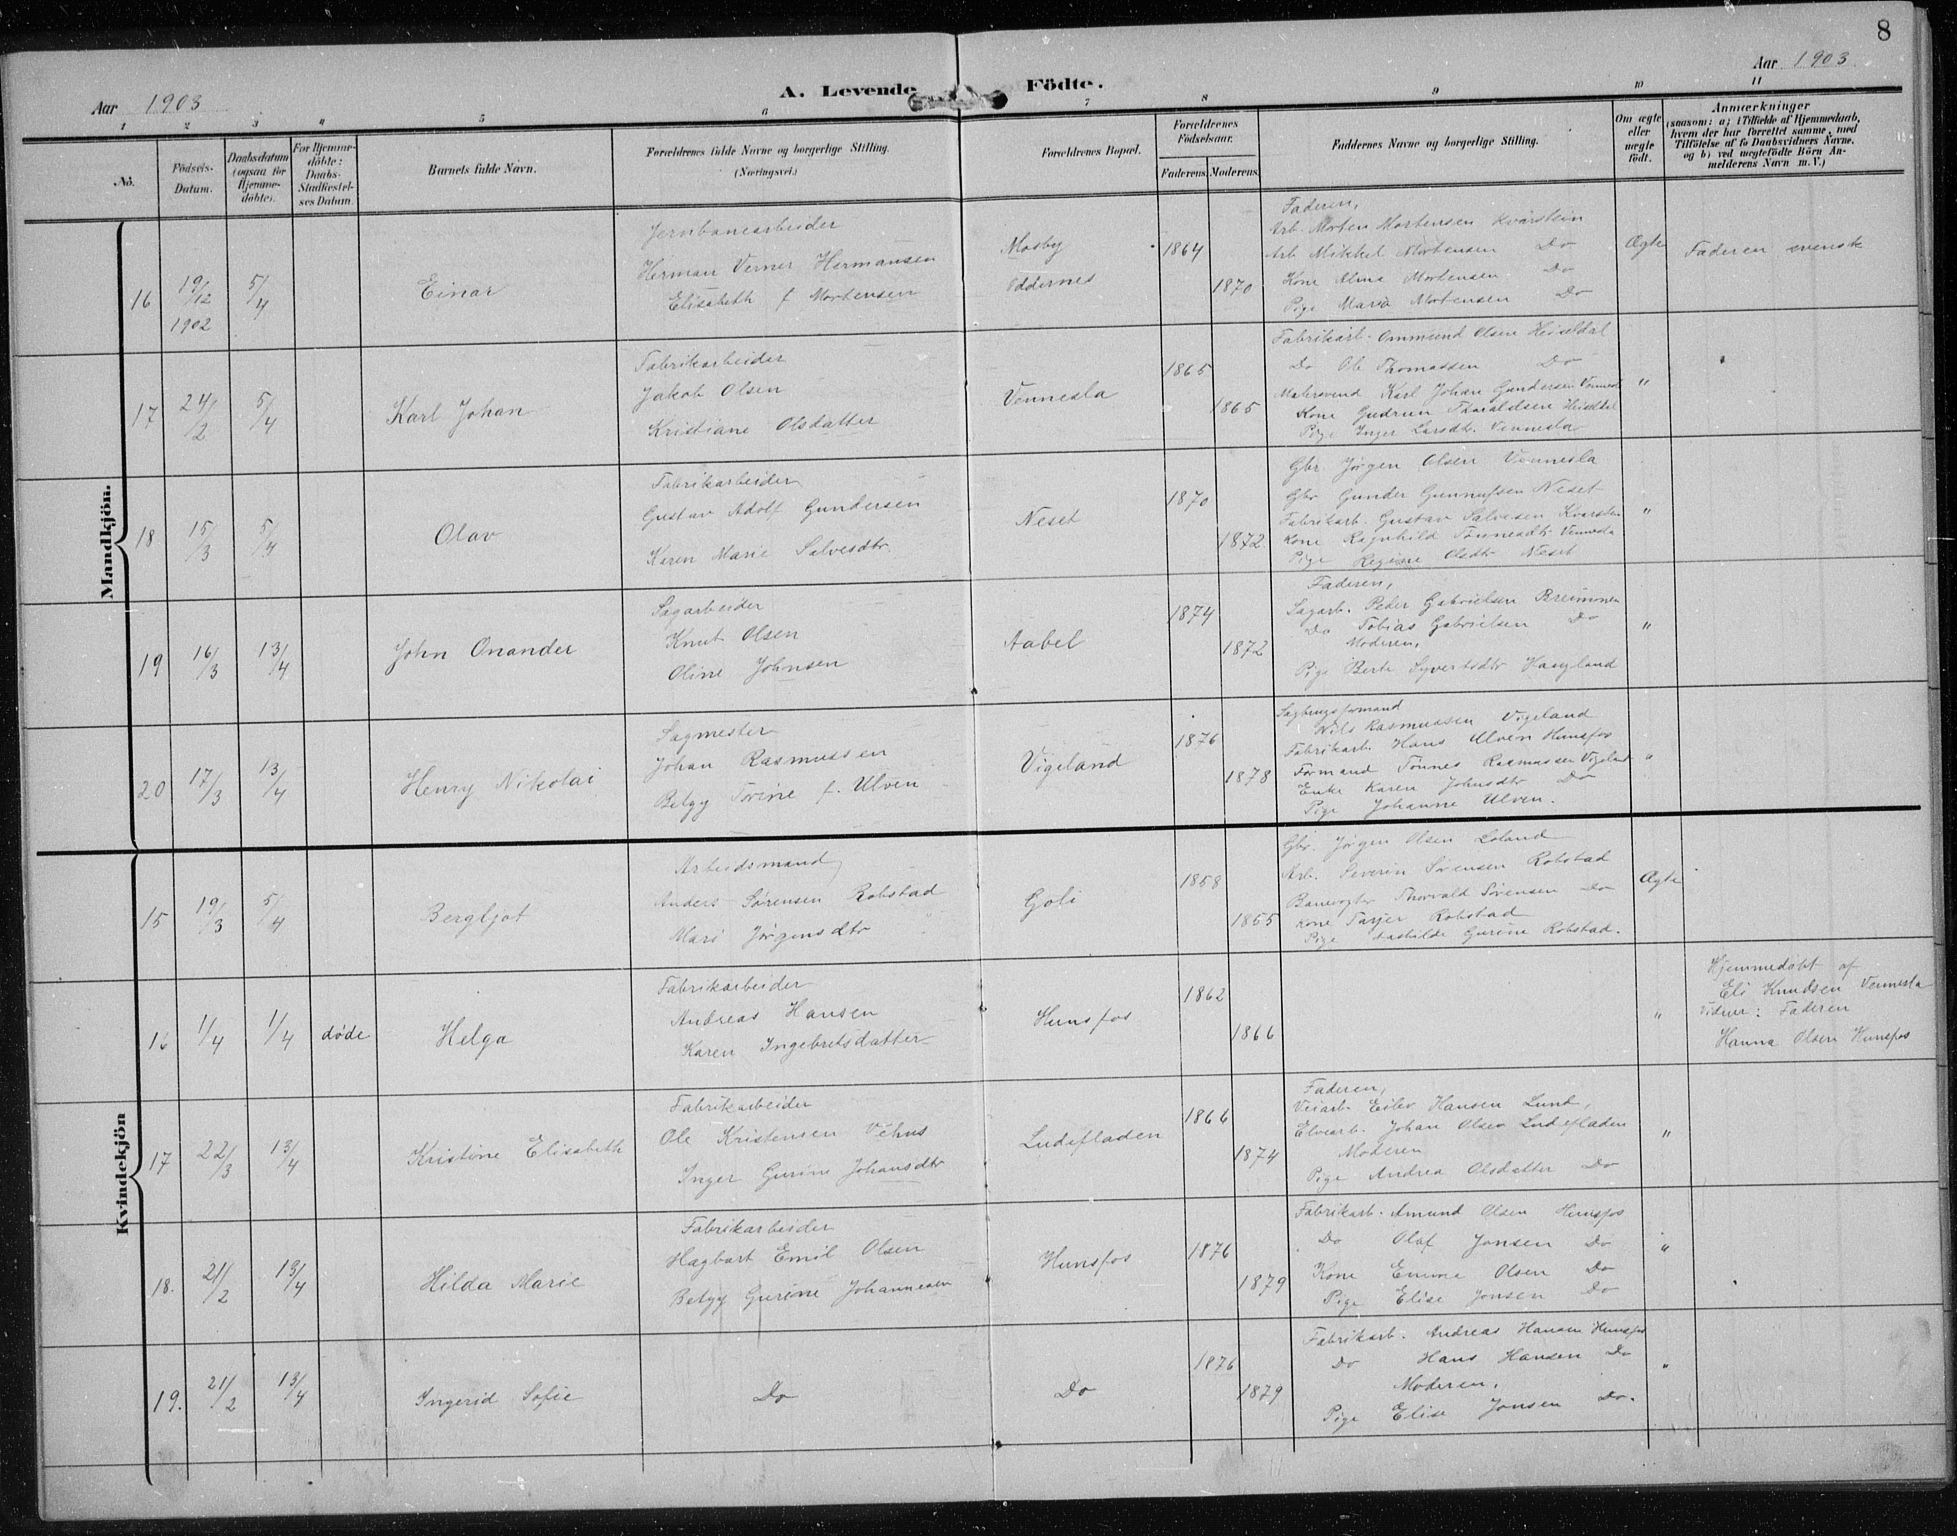 8
Aar 1903
A. Levende Födte.
Aar 1903
1 2 3 4 5 6 7 8 9 10 11
No.
Födsels-Datum.
Daabsdatum (ogsaa for Hjemme-döbte).
For Hjemme-döbte: Daabs-Stadfæstel-ses Datum.
Barnets fulde Navn.
Forældrenes fulde Navne og borgerlige Stilling.
(Næringsvei.)
Forældrenes Bopæl.
Forældrenes Födselsaar.
Faderens. Moderens.
Faddernes Navne og borgerlige Stilling.
Om ægte eller uægte födt.
Anmærkninger
(saasom: a; i Tilfælde af Hjemmedaab,
hvem der har forrettet samme, med
Tilföielse af to Daabsvidners Navne,
og b) ved uægtefödte Börn An-
melderens Navn m. V.)
Mandkjön.
16 19/12 1902 5/4 Einar
Jernbanearbeider
Herman Verner Hermansen
Elisabeth f Mortensen
Mosby
Oddernes
1864
1870
Faderen,
Arb. Morten Mortensen Kvarstein
Arb Mikkel Mortensen Do
Kone Alma Mortensen Do
Pige Maria Mortensen Do
Ægte
Faderen svensk
17 24/2 5/4 Karl Johan
Fabrikarbeider
Jakob Olsen
Kristiane Olsdatter
Vennesla
1865
1865
Fabrikarb. Ommund Olsen Heiseldal
Do Ole Thomassen Do
Karl Johan Gundersen Vennesla
Kone Gudrun Thoraldsen Heiseldal
Pige Inger Larsdtr. Vennesla
"
18 15/3 5/4 Olav
Fabrikarbeider
Gustav Adolf Gundersen
Karen Marie Salvesdtr.
Neset
1870
1872
Gbr Jørgen Olsen Vennesla
Gbr Gunder Gunnufsen Neset
Fabrikarb. Gustav Salvesen Kvarsten
Kone Ragnhild Tønnesdtr Vennesla
Pige Regine Olsdtr Neset
"
19 16/3 13/4 John Onander
Sagarbeider
Knut Olsen
Oline Johnsen
Aabel
1874
1872
Faderen,
Sagarb. Peder Gabrielsen Breimnen
Do Tobias Gabrielsen Do
Moderen,
Pige Berte Syvertsdtr Haugland
"
20 17/3 13/4 Henry Nikolai
Sagmester
Johan Rasmussen
Betzy Torine f. Ulven
Vigeland
1876
1878
Sagbrugsformand
Nils Rasmussen Vigeland
Fabrikarb. Hans Ulven Hunsfos
Formand Tönnes Rasmussen Vigeland
Enke Karen Johnsdtr Do
Pige Johanne Ulven.
"
Kvindekjön
15 19/3 5/4 Bergljot
Arbeidsmand
Anders Sörensen Robstad
Mari Jørgensdtr "
Goli
1858
1865
Gbr. Jørgen Olsen Loland
Arb. Severin Sørensen Robstad
Banevogter Thorvald Sørensen Do
Kone Tarjer Robstad
Pige Gurine Robstad.
Ægte
16 1/4 1/4 døde Helga
Fabrikarbeider
Andreas Hansen
Karen Ingebretsdatter
Hunsfos
1862
1866
"
Hjemmedøbt af
Eli Knudsen Vennesla
Vidner: Faderen
Hanna Olsen Hunsfos
17 22/3 13/4 Kristine Elisabeth
Fabrikarbeider
Ole Kristensen Vehus
Inger Gurine Johansdtr
Ludefladen
1866
1874
Faderen,
Veiarb. Eilev Hansen Lund,
Elvearb. Johan Olsen Ludefladen
Moderen
Pige Andrea Olsdatter Do
"
18. 21/2 13/4 Hilda Marie
Fabrikarbeider
Hagbart Emil Olsen
Betzy Gurine Johannesen
Hunsfos
1876
1879
Fabrikarb. Amund Olsen Hunsfos
Do Olaf Jonsen Do
Kone Emma Olsen Do
Pige Elise Jonsen Do
"
19. 21/2 13/4 Ingerid Sofie
Do
Do
1876
1879
Fabrikarb. Andreas Hansen Hunsfos
Do Hans Hansen Do
Moderen,
Pige Elise Jonsen Do.
"